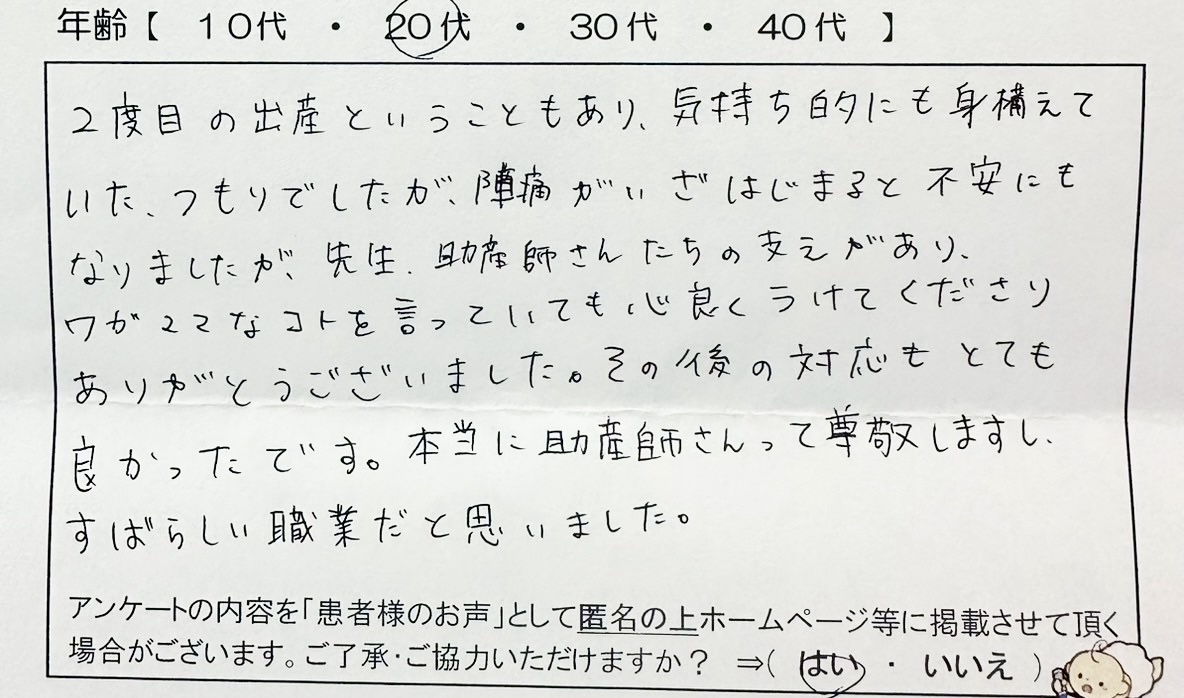 年齢【 10代 ・ 20代 ・ 30代 ・ 40代 】
2度目の出産ということもあり、気持ち的にも身構えて
いた、つもりでしたが、陣痛がいざはじまると不安にも
なりましたが、先生、助産師さんたちの支えがあり、
ワガママなコトを言っていても心良くうけてくださり
ありがとうございました。その後の対応もとても
良かったです。本当に助産師さんって尊敬しますし、
すばらしい職業だと思いました。
アンケートの内容を「患者様のお声」として匿名の上ホームページ等に掲載させて頂く
場合がございます。ご了承・ご協力いただけますか？ ⇒( はい ・ いいえ )